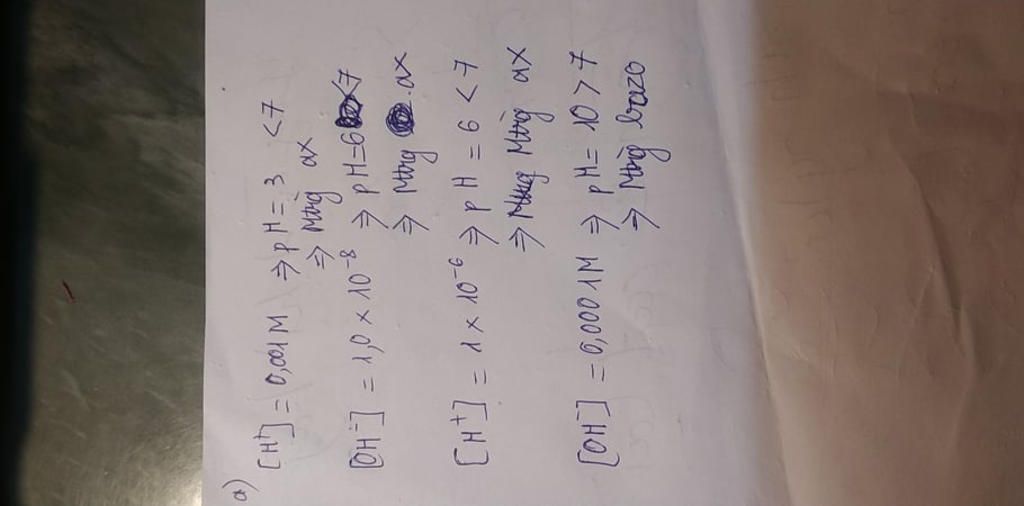 a)
[H⁺] = 0,001M ⇒ pH = 3 < 7
⇒ Mtrg ax
[OH⁻] = 1,0 × 10⁻⁸ ⇒ pH = 6 < 7
⇒ Mtrg ax
[H⁺] = 1 × 10⁻⁶ ⇒ pH = 6 < 7
⇒ Mtrg ax
[OH⁻] = 0,0001M ⇒ pH = 10 > 7
⇒ Mtrg bazo